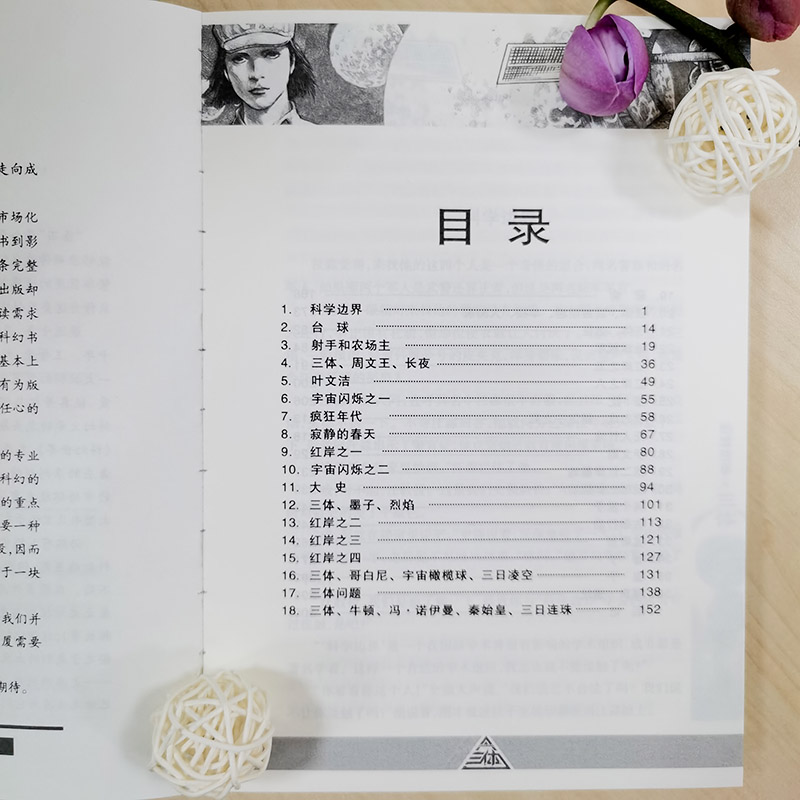 走向成
市场化
书到影
条完整
出版却
读需求
科幻书
基本上
有为版
任心的
的专业
科幻的
的重点
要一种
设,因而
于一块
我们并
履需要
期待。
目 录
1. 科学边界 1
2. 台 球 14
3. 射手和农场主 19
4. 三体、周文王、长夜 36
5. 叶文洁 49
6. 宇宙闪烁之一 55
7. 疯狂年代 58
8. 寂静的春天 67
9. 红岸之一 80
10. 宇宙闪烁之二 88
11. 大 史 94
12. 三体、墨子、烈焰 101
13. 红岸之二 113
14. 红岸之三 121
15. 红岸之四 127
16. 三体、哥白尼、宇宙橄榄球、三日凌空 131
17. 三体问题 138
18. 三体、牛顿、冯·诺伊曼、秦始皇、三日连珠 152
三体